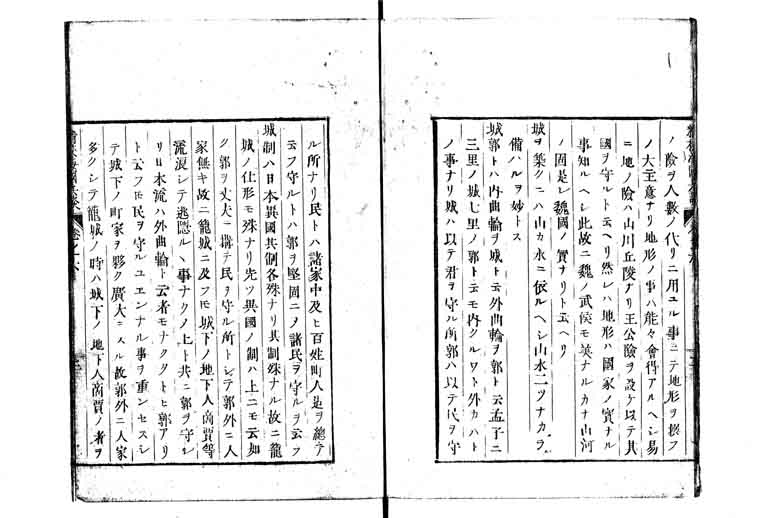 ノ險ヲ人數ノ代リニ用ユル事ニテ地形ヲ撰フ
ノ大主意ナリ地形ノ事ハ能々會得アルヘシ易
ニ地ノ險ハ山川丘陵ナリ王公險ヲ設ケ以テ其
國ヲ守ルト云ヘリ然レハ地形ハ國家ノ寳ナル
事知ルヘシ此故ニ魏ノ武侯モ美ナルカナ山河
ノ固是レ魏國ノ寳ナリト云ヘリ
城ヲ築クニハ山カ水ニ依ルヘシ山水二ツナカラ
備ハルヲ妙トス
城郭トハ内曲輪ヲ城ト云外曲輪ヲ郭ト云孟子ニ
三里ノ城七里ノ郭ト云モ内クルワト外カハト
ノ事ナリ城ハ以テ君ヲ守ル所郭ハ以テ民ヲ守
ル所ナリ民トハ諸家中及ヒ百姓町人迠ヲ總テ
云フ守ルトハ郭ヲ堅固ニノ諸民ヲ守ルヲ云フ
城制ハ日本異國共制各殊ナリ其制殊ナル故ニ籠
城ノ仕形モ殊ナリ先ツ異國ノ制ハ上ニモ云如
ク郭ヲ丈夫ニ搆テ民ヲ守ル所トシテ郭外ニ人
家無キ故ニ籠城ニ及フモ城下ノ地下人商賈等
流浪シテ逃隠ルヽ事ナク上ト共ニ郭ヲ守レ
リ日本流ハ外曲輪ト云者モナクタトヒ郭アリ
ト云フモ民ヲ守ルユエンナル事ヲ重ンセスシ
テ城下ノ町家ヲ夥ク廣大ニスル故郭外ニ人家
多クシテ籠城ノ時ハ城下ノ地下人商賈ノ者ヲ
卷之六